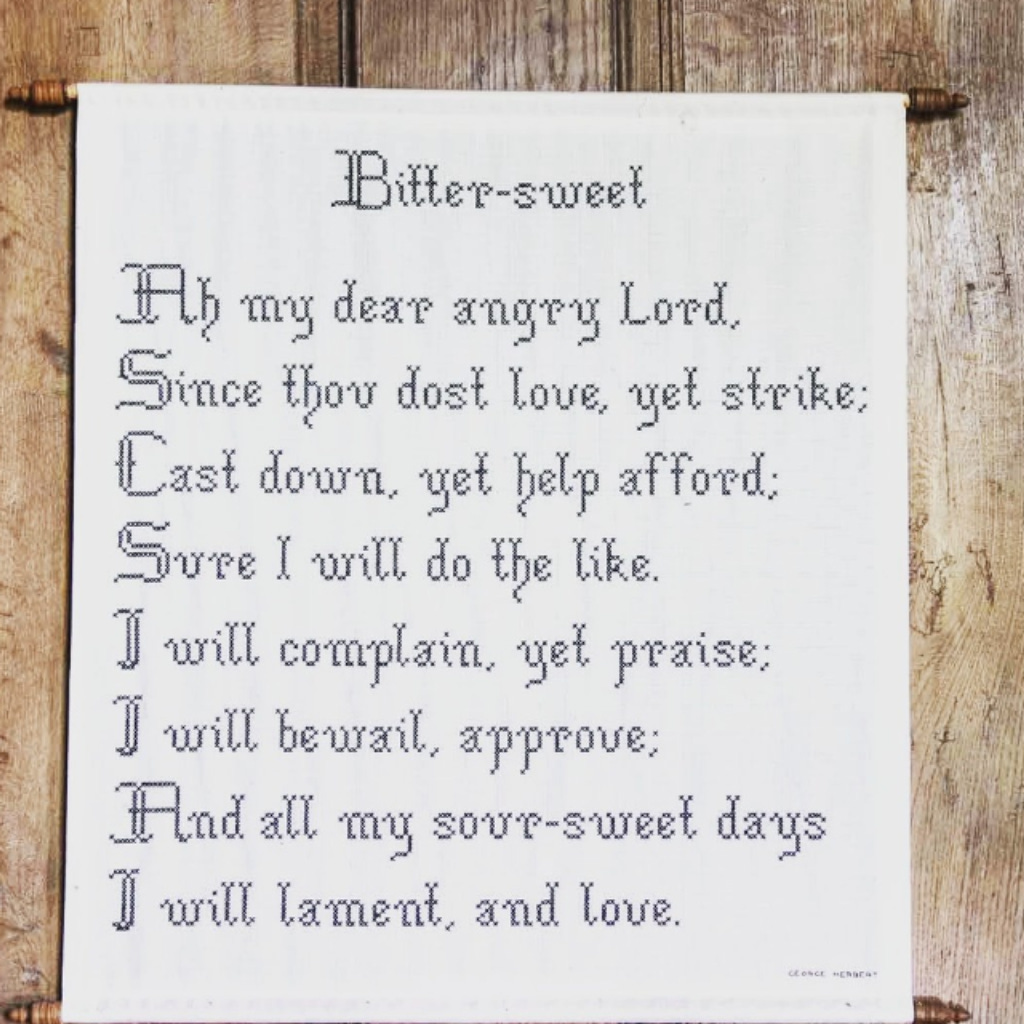 Bitter-sweet
Ah my dear angry Lord,
Since thou dost love, yet strike;
Cast down, yet help afford;
Sure I will do the like.
I will complain, yet praise;
I will bewail, approve;
And all my sour-sweet days
I will lament, and love.
GEORGE HERBERT